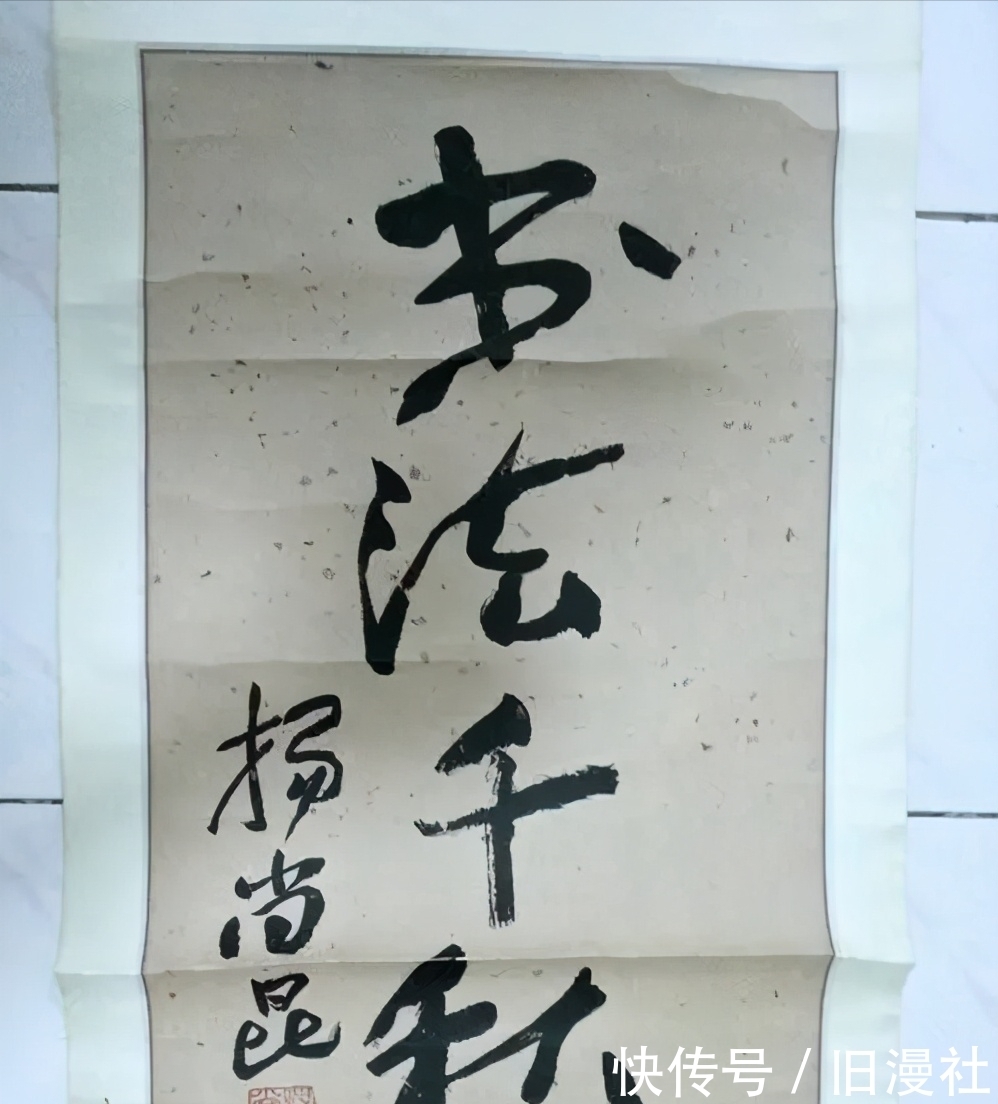 书法千秋
杨尚昆
快传号 / 旧漫社